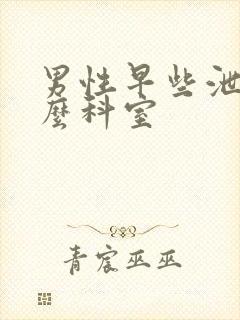 男性早些泄
麼科室
青宸巫巫